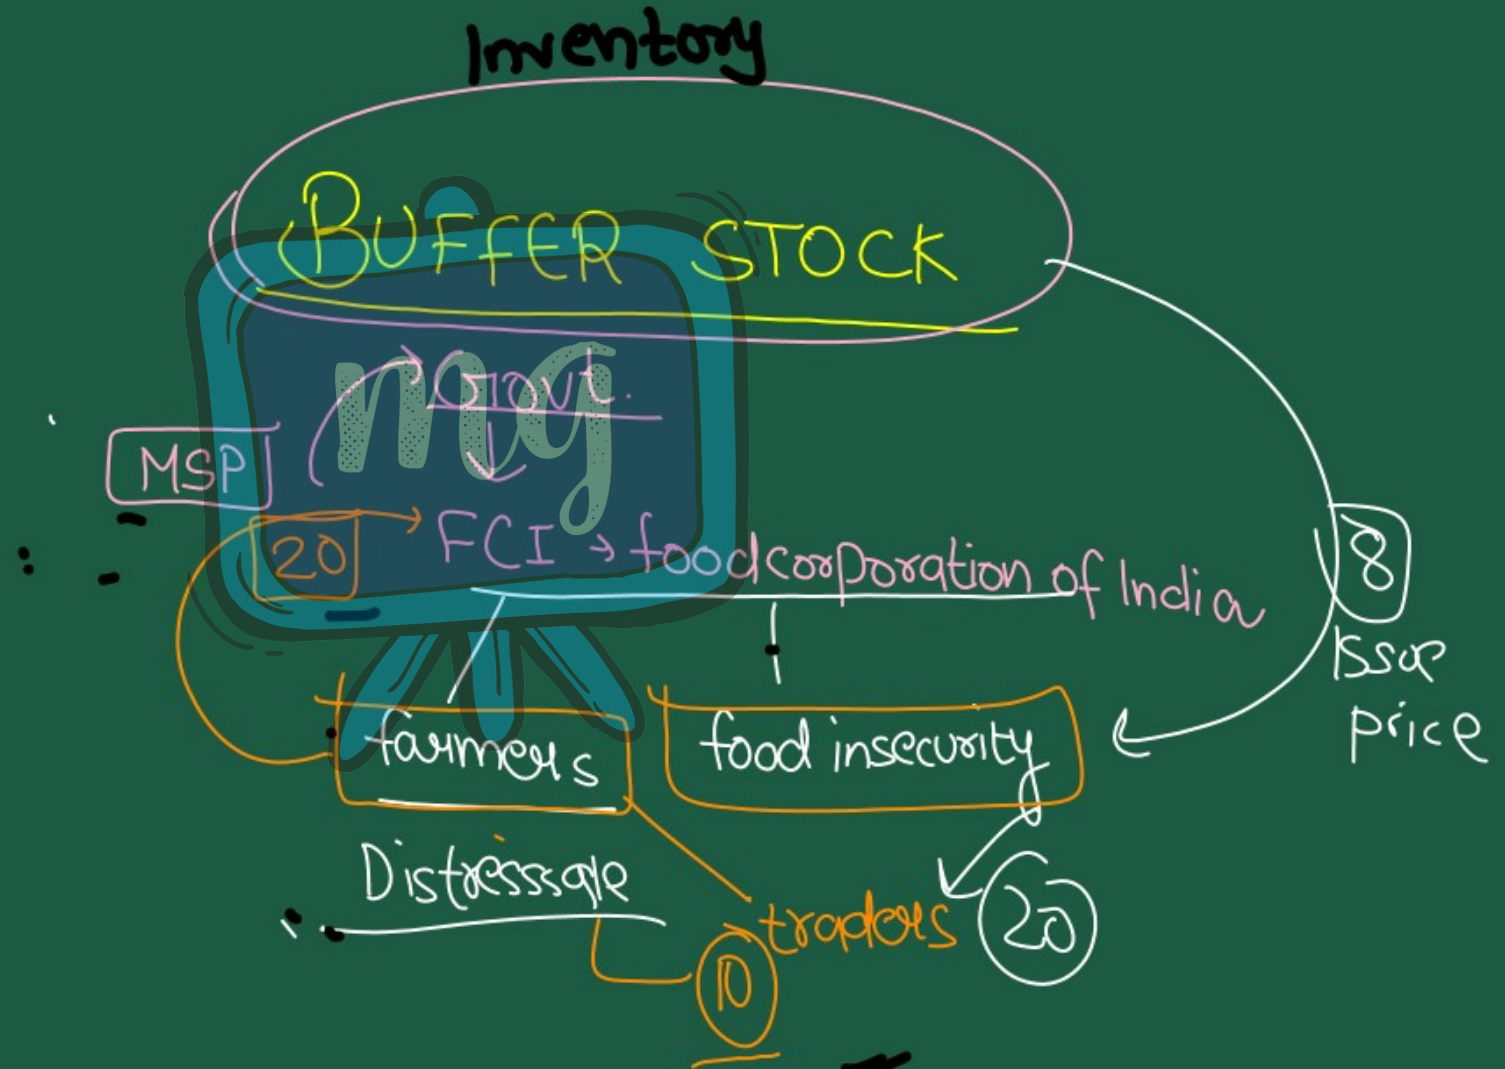 Inventory
BUFFER STOCK
mg
Govt.
MSP
20 → FCI → foodcorporation of India
8
Issue
price
farmers
food insecurity
Distresssale
traders
20
10